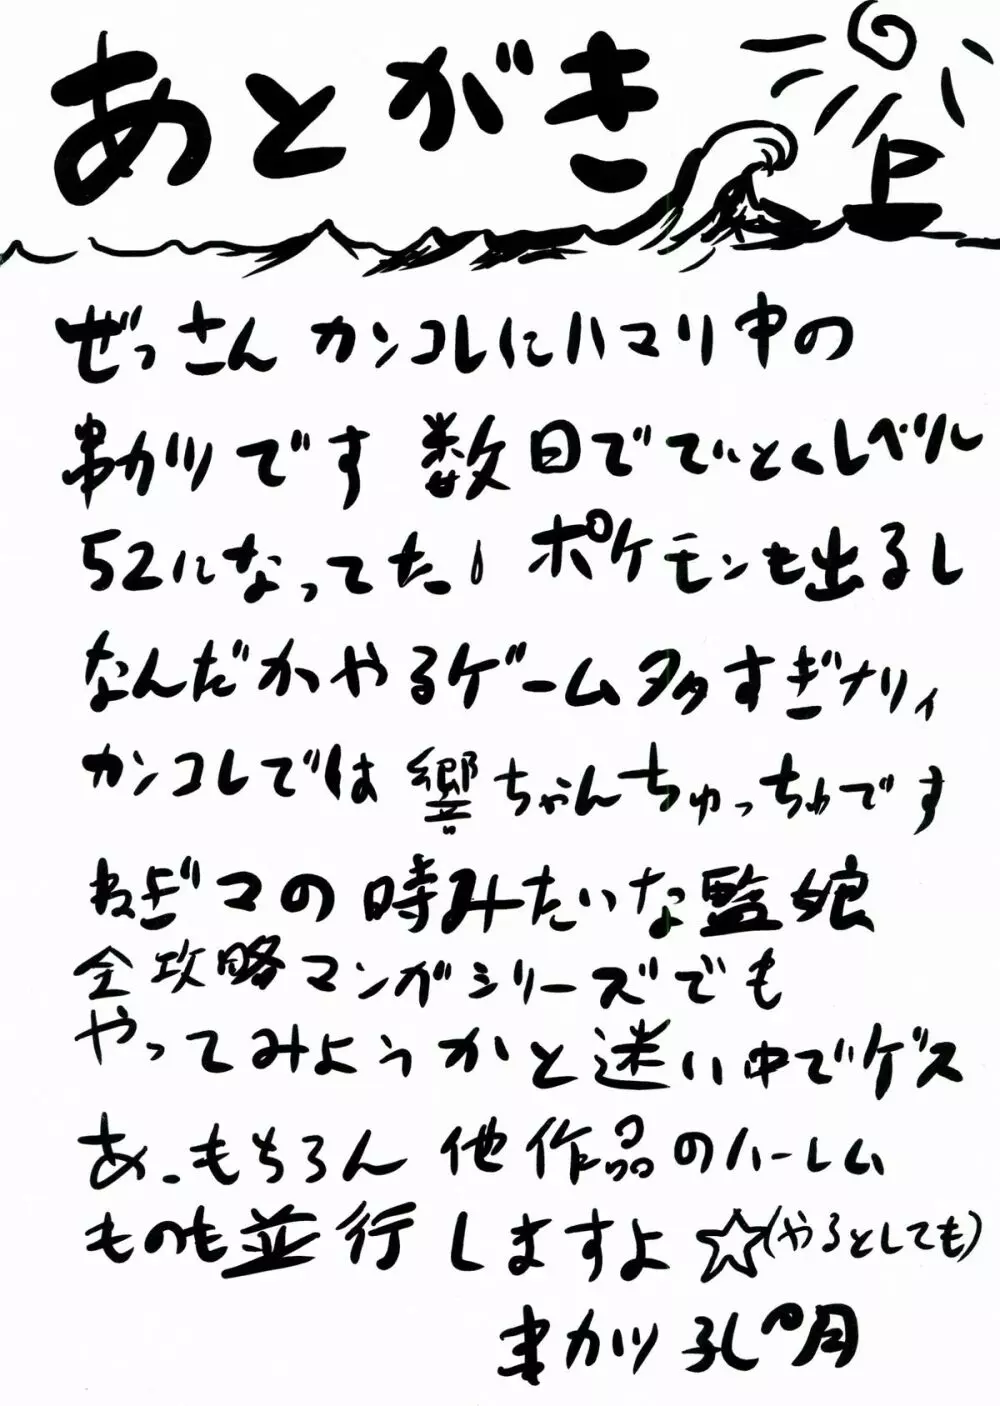 あとがき
ぜっさんカンコレにハマり中の
串カツです 数日でてぃとくレベル
52になってた! ポケモンも出るし
なんだかやるゲーム多すぎナリィ
カンコレでは響ちゃんちゅっちゅです
ねぎマの時みたいな監娘
全攻略マンガシリーズでも
やってみようかと迷い中でゲス
あ、もちろん他作品のハーレム
ものも並行しますよ☆(やるとしても)
串カツ孔明